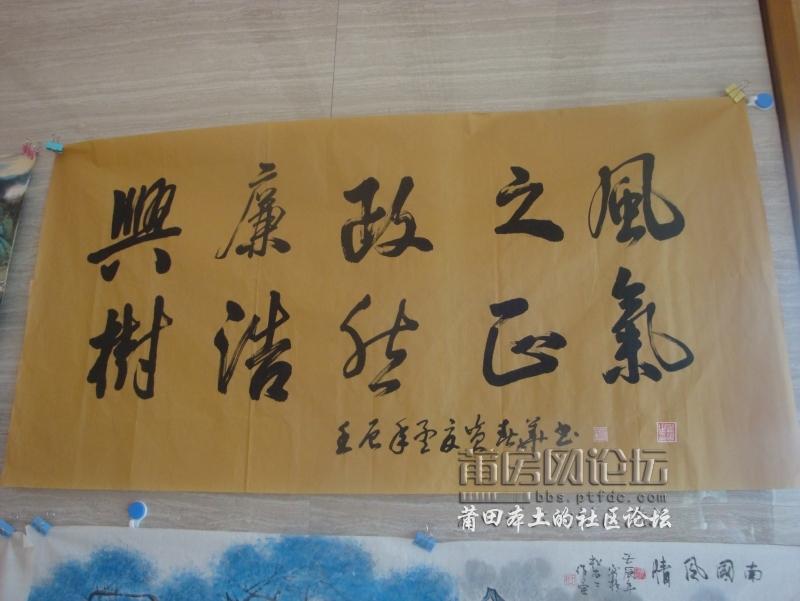 興廉政之風
樹浩然正氣
壬辰年孟夏黄春華书
莆房网论坛
bbs.ptfdc.com
莆田本土的社区论坛
南國风情